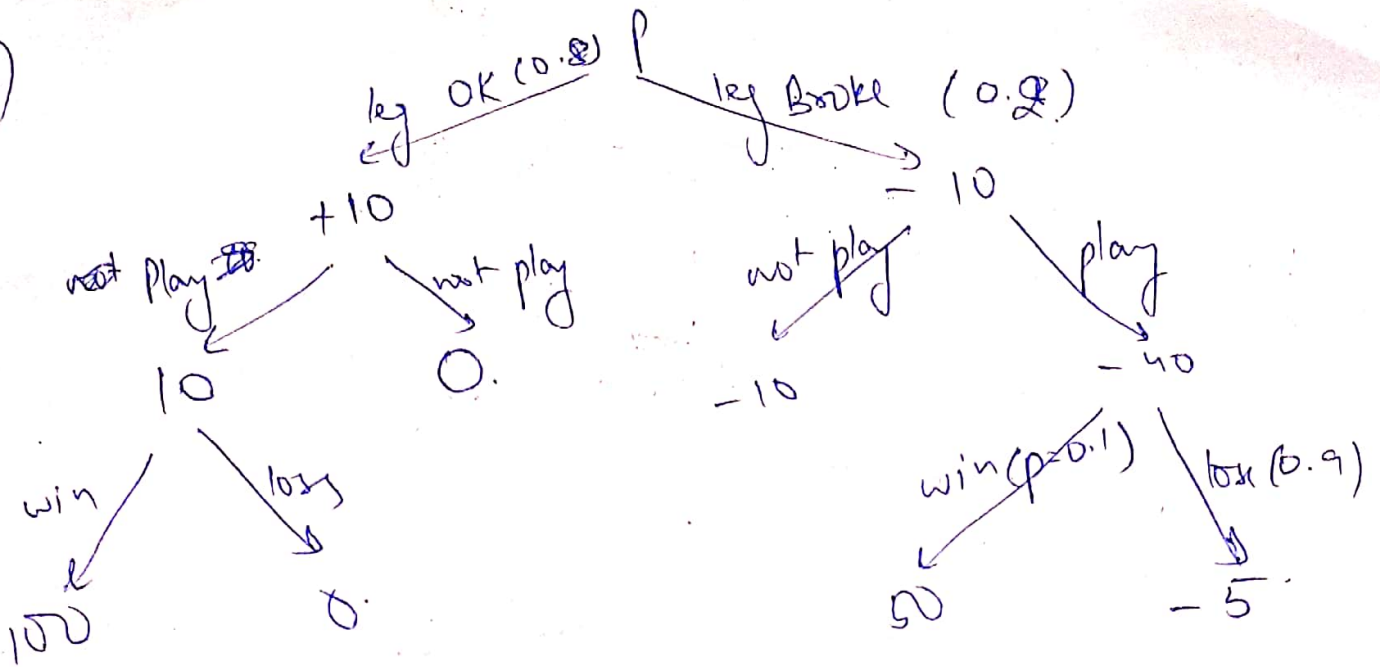 )
P
leg OK (0.8) leg Broke (0.2)
+10 - 10
Play not play not play play
10 0. -10 - 40
win loss win (p=0.1) lose (0.9)
100 0. 50 - 5